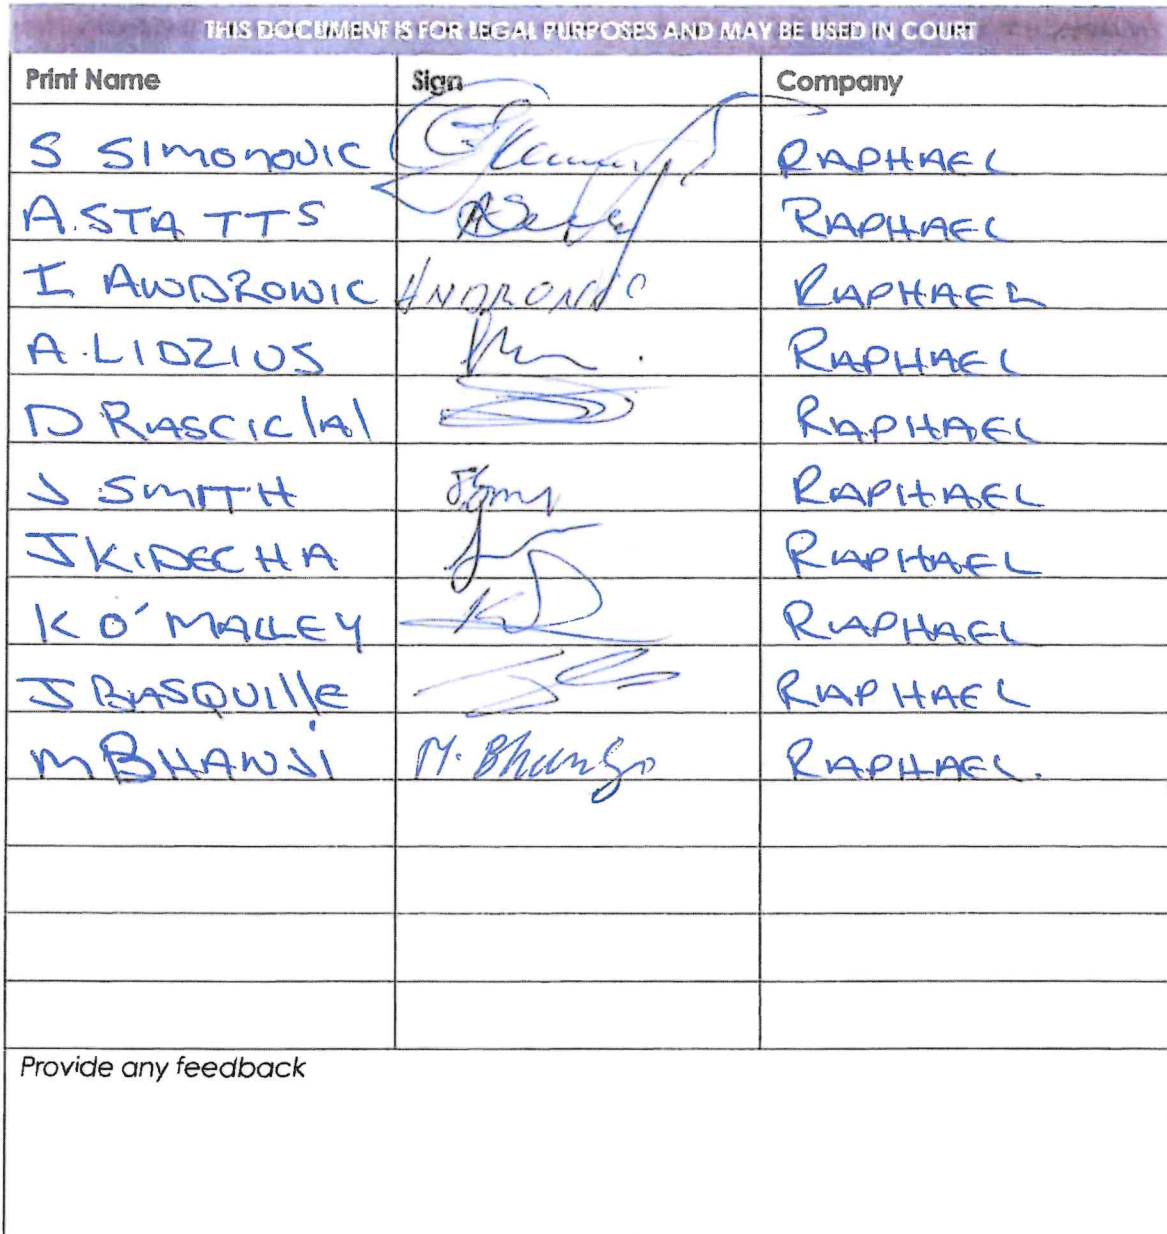 THIS DOCUMENT IS FOR LEGAL PURPOSES AND MAY BE USED IN COURT
Print Name Sign Company
S SIMONOVIC RAPHAEL
A. STATTS RAPHAEL
I AWDZOWIC RAPHAEL
A. LIDZIUS RAPHAEL
D RAPHAEL
J SMITH RAPHAEL
J KIDECHA RAPHAEL
K O'MALLEY RAPHAEL
J BASQUILLE RAPHAEL
M BHANJI M. RAPHAEL.
Provide any feedback